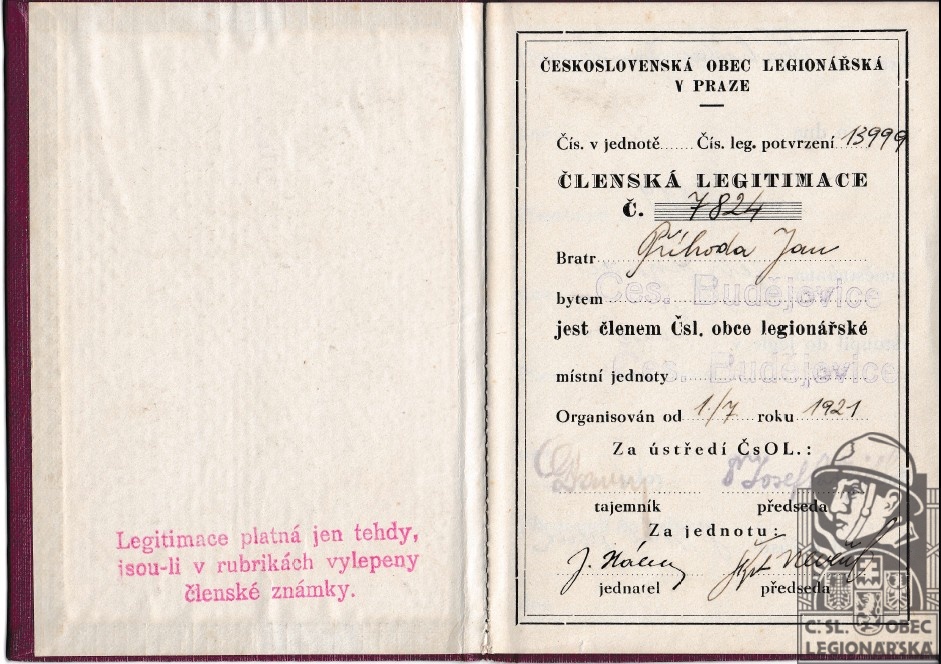 Legitimace platná jen tehdy,
jsou-li v rubrikách vylepeny
členské známky.
ČESKOSLOVENSKÁ OBEC LEGIONÁŘSKÁ
V PRAZE
Čís. v jednotě...... Čís. leg. potvrzení 13999
ČLENSKÁ LEGITIMACE
Č. 7824
Bratr Příhoda Jan
bytem Čes. Budějovice
jest členem Čsl. obce legionářské
místní jednoty Čes. Budějovice
Organisován od 1./7 roku 1921
Za ústředí ČsOL.:
Josef
tajemník předseda
Za jednotu:
J.
jednatel předseda
ČSL. OBEC
LEGIONÁŘSKÁ